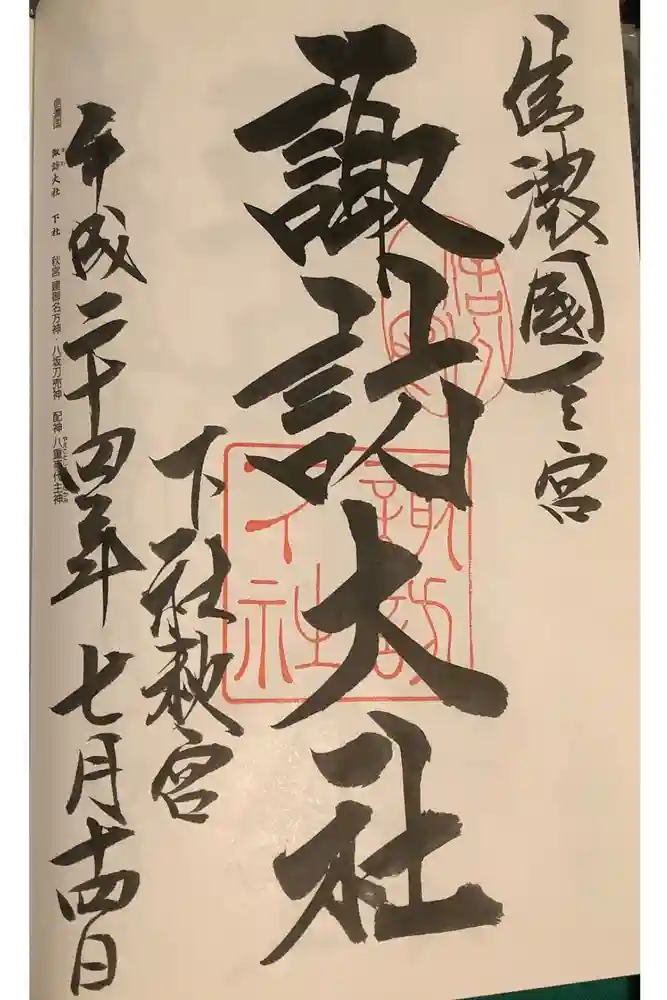 信濃國一之宮
諏訪大社
下社秋宮
平成二十四年七月十四日
信濃国 諏訪大社 下社 秋宮 建御名方神・八坂刀売神 配神 八重事代主神
諏訪
下社